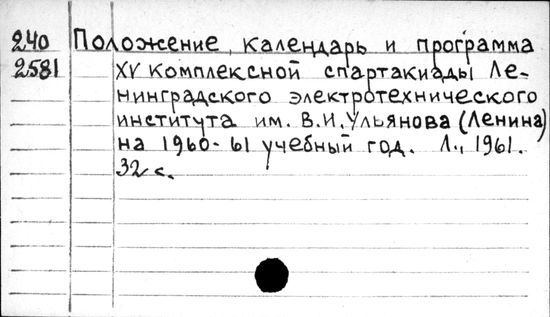 240 Положение, календарь и программа
2581 XV комплексной спартакиады Ле-
нинградского электротехнического
института им. В.И.Ульянова (Ленина)
на 1960-61 учебный год. Л., 1961.
32 с.